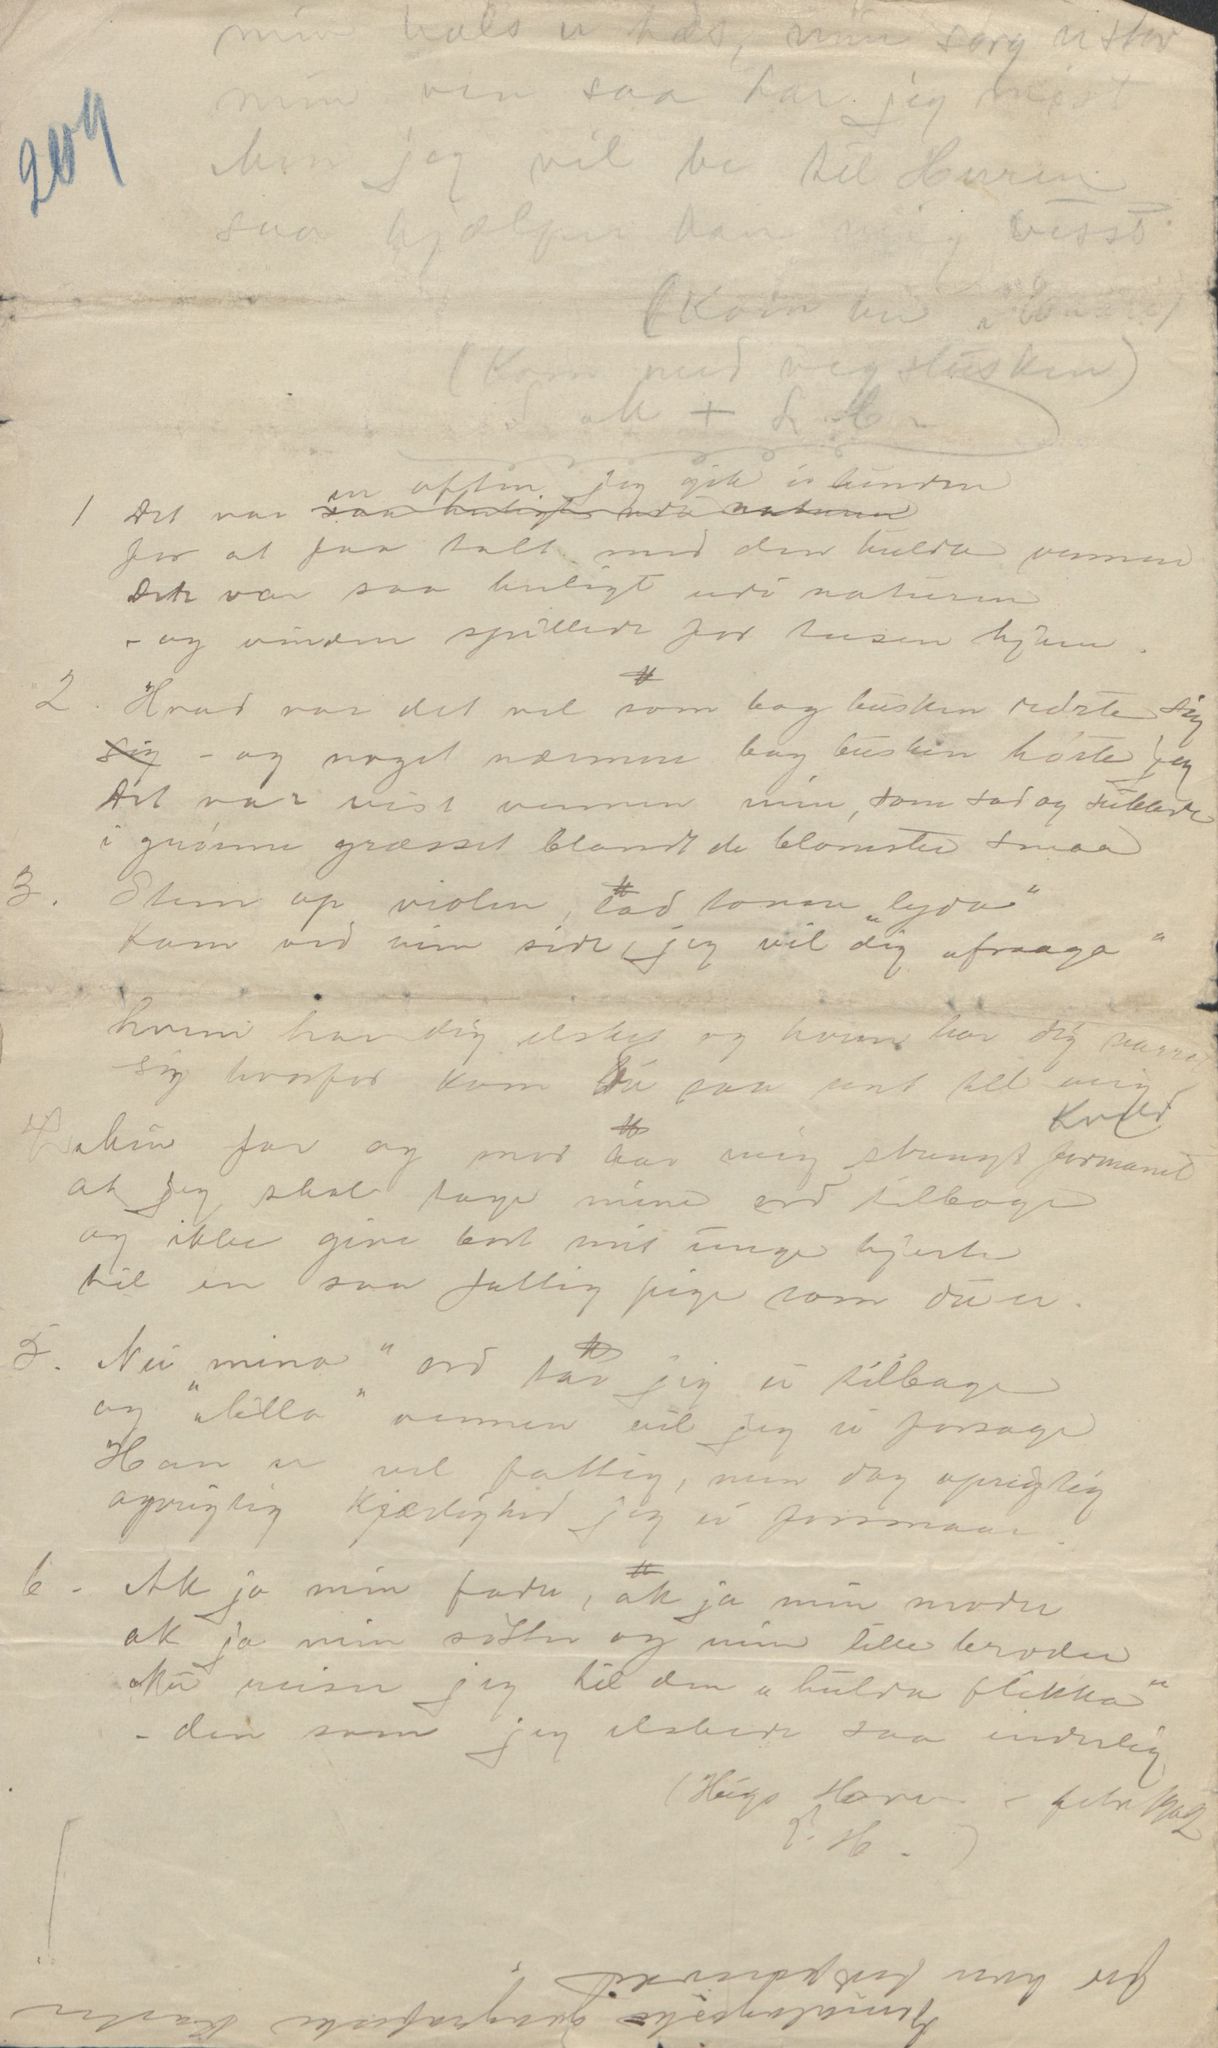 209
min hals er hæs, min sorg er stor
min ven saa har jeg mist
Men jeg vil be til Herren
saa hjælper han mig visst
(Kom her
(Kom ned
1 Det var en aften jeg gik i lunden
saa herligt udi naturen
for at faa talt med den hulde vennen
Det var saa herligt udi naturen
- og vinden spillede for
2. Hvad var det vel som bag busken rørte sig
sig - og noget nærmere bag busken hørte jeg
Det var vist vennen min, som sad og
i grønne græsset blandt de blomster smaa
3. Stem op violin, lad tonen "lyda"
Kom ved min side, jeg vil dig "fraaga"
hvem har dig elsket og hvem har dig narret
sig hvorfor kom du saa sent til mig
Kveld
4. Min far og mor har mig strengt formanet
at jeg skal tage mine ord tilbage
og ikke give bort mit unge hjerte
til en saa fattig pige som du er.
5. Nei "mina" ord tar jeg ei tilbage
og "lilla" vennen vil jeg ei forsage
Han er vel fattig, men dog oprigtig
oprigtig Kjærlighed jeg ei forsmaar.
6. Ak ja min fader, ak ja min moder
ak ja min søster og min lille broder
Nu reiser jeg til den "hulda flikka"
- den som jeg elskede saa inderlig
(Hugo - febr
H.)
for hver